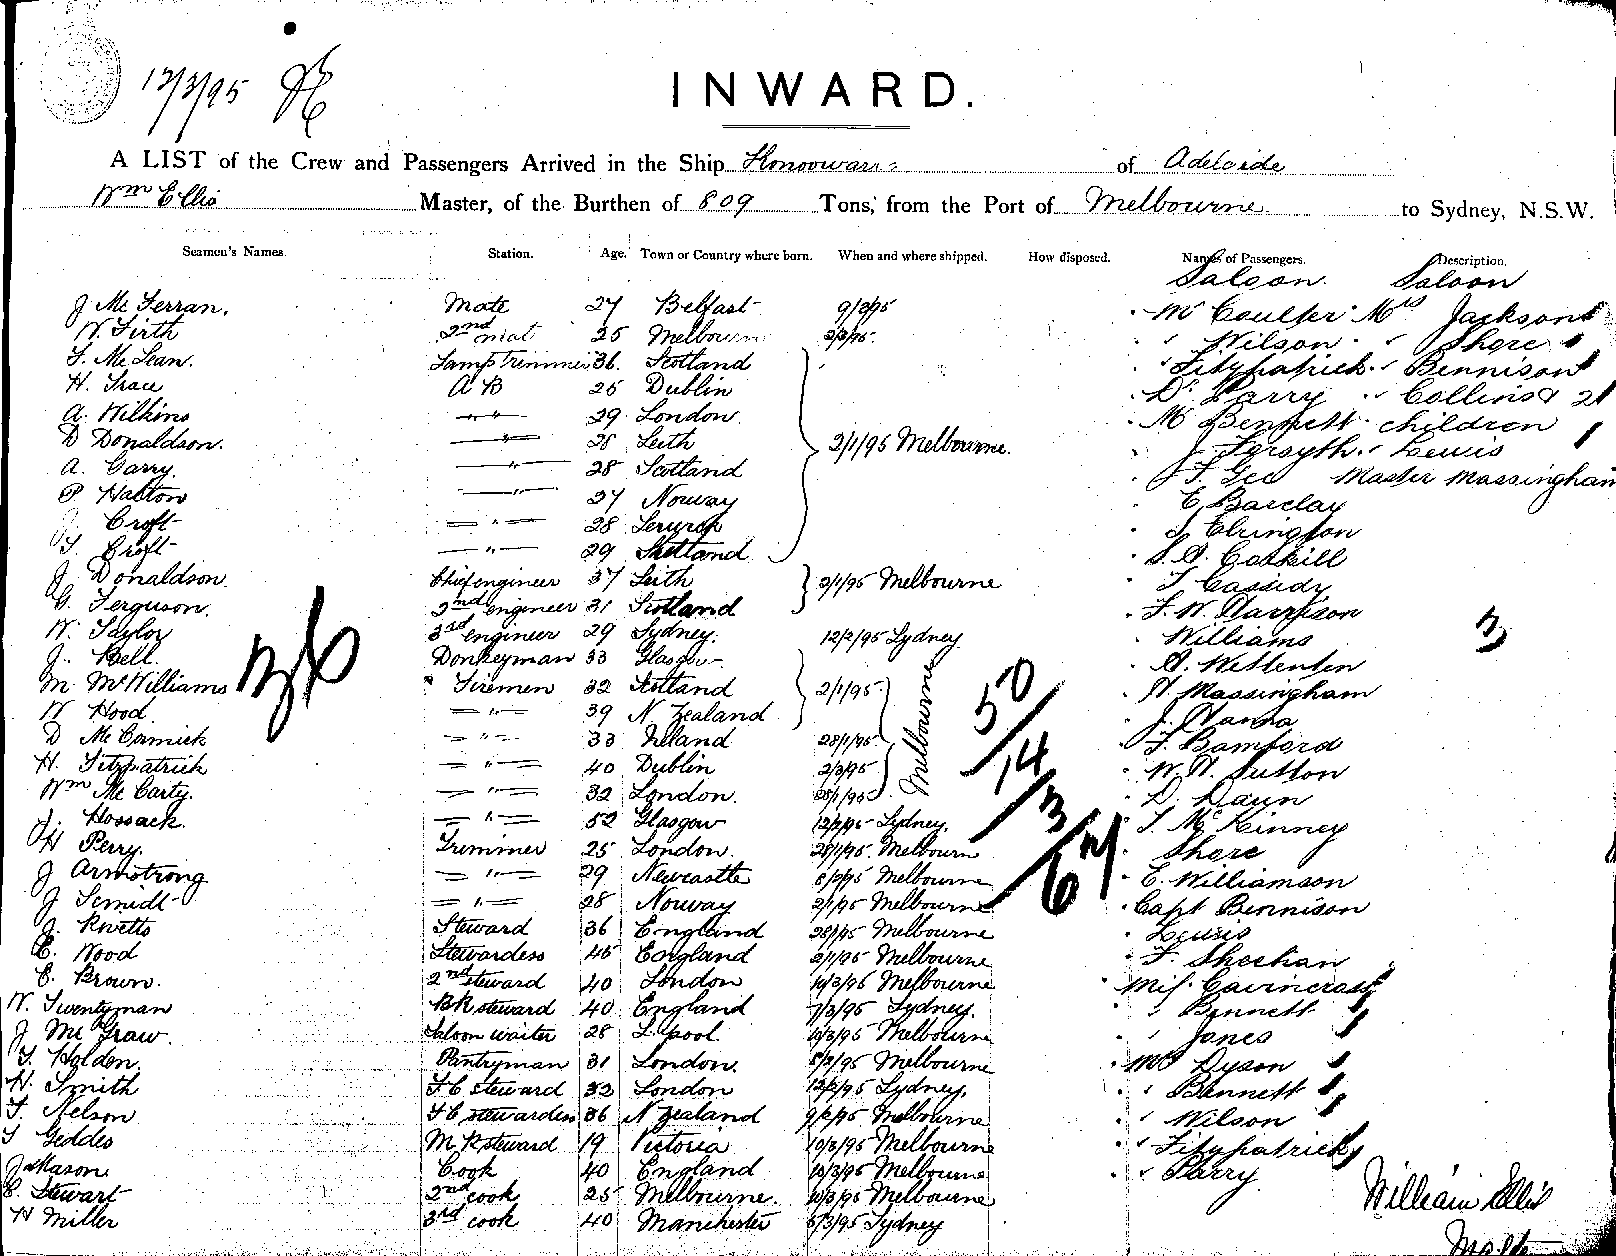 12/3/95
INWARD.
A LIST of the Crew and Passengers Arrived in the Ship Konoowarra of Adelaide
Wm Ellis Master, of the Burthen of 809 Tons, from the Port of Melbourne to Sydney, N.S.W.
Seamen's Names. Station. Age. Town or Country where born. When and where shipped. How disposed. Names of Passengers. Description.
Saloon Saloon
J Mc Ferran. Mate 27 Belfast 9/2/95 Mr Coulter Mrs Jackson
W. Firth 2nd mat 25 Melbourn " Wilson " Shore
F. Mc Lean. Lamp trimmer 36. Scotland " Fitzpatrick " Bennison
H. Grace A B 25 Dublin Dr Parry " Collins & 2
A. Wilkins " 29 London Mr Bennett children
D Donaldson. " Leith 2/1/95 Melbourne. J Forsyth " Lewis
A. Garry. " 28 Scotland J. T. Gee Master Massingham
P. Halton " 27 Norway E. Barclay
J. Croft " 28 Lerwick J. Elrington
T. Croft " 29 Shetland S. D. Gaskill
J. Donaldson. Chief engineer 37 Leith 2/1/95 Melbourne T Cassidy
G. Ferguson. 2nd engineer 31 Scotland F. W. Harrison
W. Taylor 3rd engineer 29 Sydney. 12/2/95 Sydney Williams 3
J. Bell. Donkeyman 33 Glasgow A. Wettenten
M McWilliams Firemen 32 Scotland 2/1/95 Melbourne H. Massingham
W Hood " 39 N. Zealand J. Hanna
D McCormick " 33 Ireland 28/1/95 F. Bamford
H. Fitzpatrick " 40 Dublin 2/3/95 W. H. Sutton
Wm McCarty. " 32 London. 28/1/95 D. Daun
J. Hossack. " 52 Glasgow 12/2/95 Sydney. T. McKinney
H Perry. Trimmer 25 London. 28/1/95. Melbourn Shore
J Armstrong " 29 Newcastle Melbourne E. Williamson
J Semidt " 28 Norway 2/1/95 Melbourne Capt Bennison
J. Rivetts Steward 36 England 28/1/95 Melbourne Lewis
E. Wood Stewardess 45 England 2/1/95 Melbourne F. Sheehan
C. Brown. 2nd steward 40 London 10/3/95 Melbourne Miss
W. Twentyman BR steward 40 England 7/3/95 Sydney. " Bennett
J McGraw. Saloon waiter 28 L.pool 10/3/95 Melbourne " Jones
T. Holden. Pantryman 31 London. Melbourne Mrs Dyson
H. Smith F C steward 32 London 12/2/95 Sydney. " Bennett
F. Nelson F C stewardess 36 N Zealand 9/2/95 Melbourne " Wilson
T Geddes M R steward 19 Victoria 10/3/95 Melbourne " Fitzpatrick
Jas Mason Cook 40 England 10/3/95 Melbourne " Parry
C. Stewart 2nd cook 25 Melbourne. 10/3/95 Melbourne
H Miller 3rd cook 40 Manchester Sydney
36
50
14
3
67
William Ellis
Master